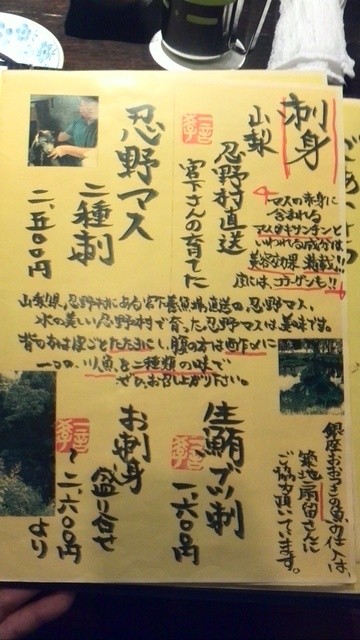 刺身
山梨
忍野村直送
宮下さんの育てた
忍野マス
二種刺
二、五〇〇円
マスの赤身に
含まれる
アスタキサンチンと
いわれる成分は
美容効果満載!!
皮には、コラーゲンも!!
山梨県、忍野村にある宮下養魚場直送の、忍野マス、
水の美しい忍野村で育った忍野マスは美味です。
背の方は皮ごとたたきにし、腹の方は
一つの、川魚を二種類の味で
ぜひ、お召し上がり下さい。
生鮪ブツ刺
一、六〇〇円
お刺身
盛り合せ
二、六〇〇円
より
の魚の仕入は、
築地
さんに
ご協力頂いています。